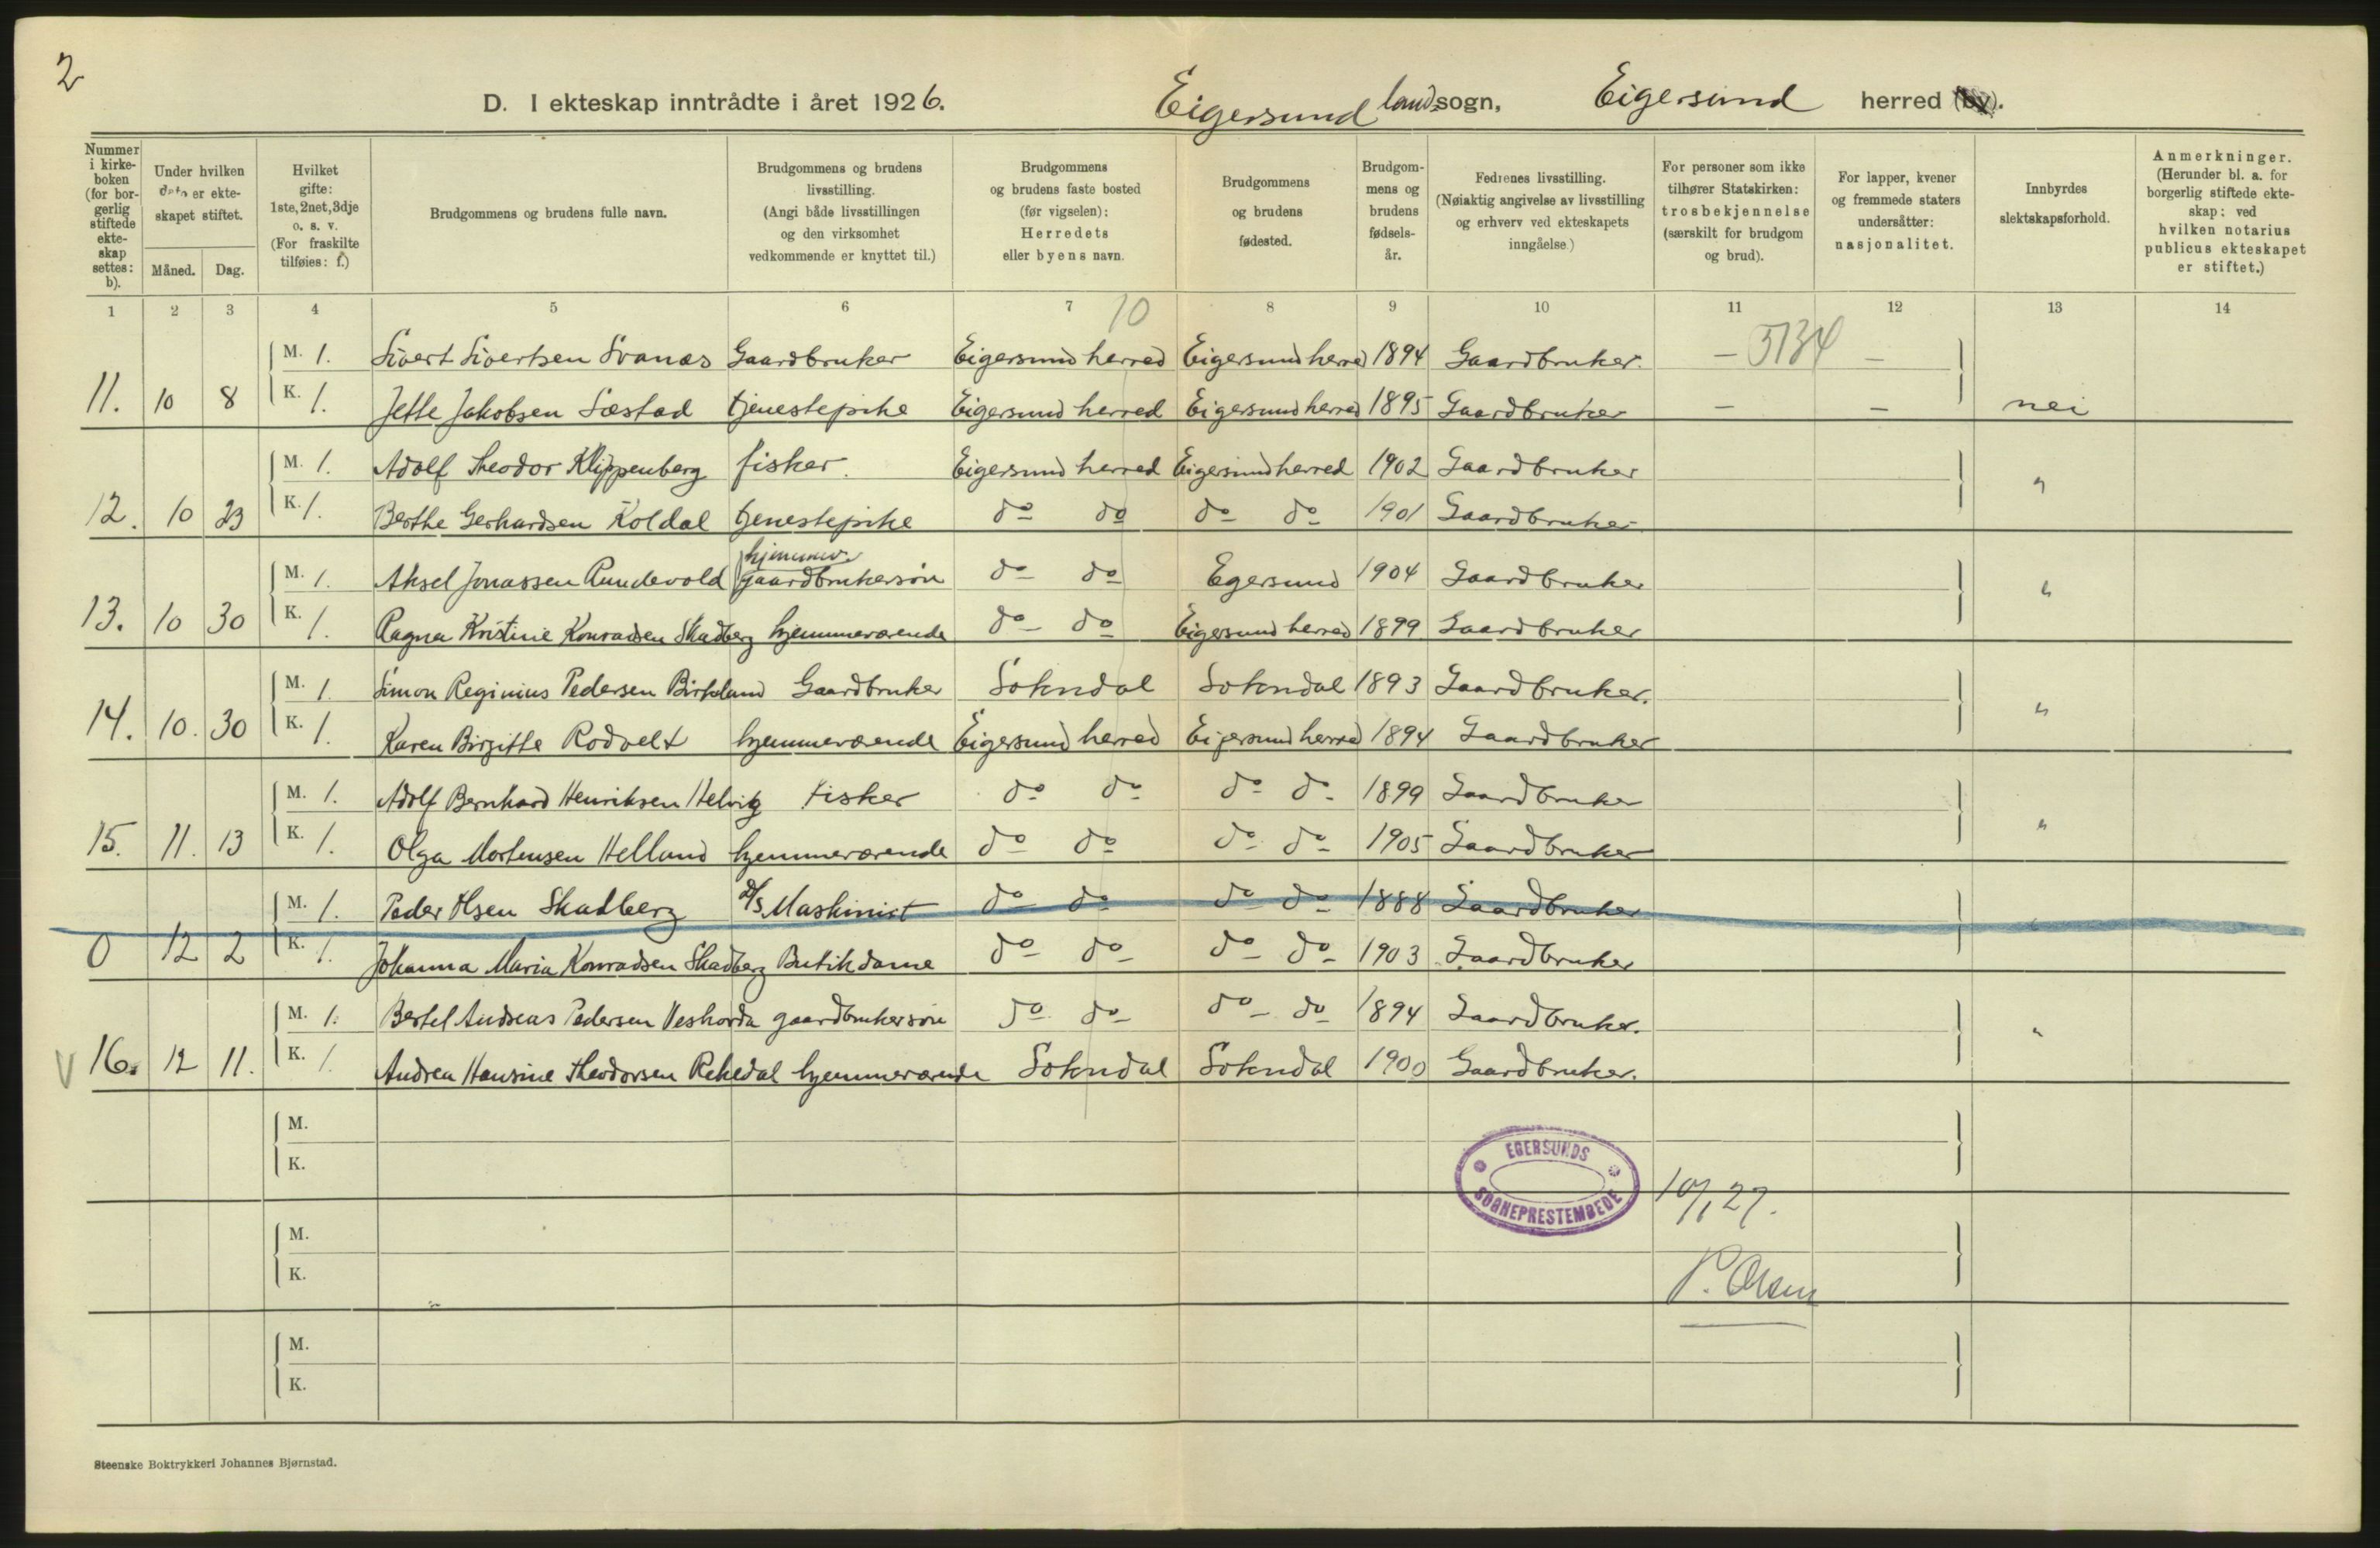 2
D. I ekteskap inntrådte i året 1926. Eigersund landsogn, Eigersund herred (by).
Nummer i kirkeboken (for borgerlig stiftede ekteskap settes: b).
Under hvilken dato er ekteskapet stiftet.
Måned. Dag.
Hvilket gifte: 1ste, 2net, 3dje o. s. v. (For fraskilte tilføies: f.)
Brudgommens og brudens fulle navn.
Brudgommens og brudens livsstilling. (Angi både livsstillingen og den virksomhet vedkommende er knyttet til.)
Brudgommens og brudens faste bosted (før vigselen): Herredets eller byens navn.
Brudgommens og brudens fødested.
Brudgommens og brudens fødselsår.
Fedrenes livsstilling. (Nøiaktig angivelse av livsstilling og erhverv ved ekteskapets inngåelse.)
For personer som ikke tilhører Statskirken: trosbekjennelse (særskilt for brudgom og brud).
For lapper, kvener og fremmede staters undersåtter: nasjonalitet.
Innbyrdes slektskapsforhold.
Anmerkninger. (Herunder bl. a. for borgerlig stiftede ekteskap: ved hvilken notarius publicus ekteskapet er stiftet.)
1 2 3 4 5 6 7 8 9 10 11 12 13 14
10
M. 1. Sivert Sivertsen Svanæs Gaardbruker Eigersund herred Eigersund herred 1894 Gaardbruker. — 5134 —
11. 10 8 K. 1. Jette Jakobsen Sæstad tjenestepike Eigersund herred Eigersund herred 1895 Gaardbruker — — nei
M. 1. Adolf Theodor Klippenberg fisker. Eigersund herred Eigersund herred 1902 Gaardbruker
12. 10 23 K. 1. Berthe Gerhardsen Koldal tjenestepike do do do do 1901 Gaardbruker "
hjemmev.
M. 1. Aksel Jonassen Rundevold gaardbrukersøn do do Egersund 1904 Gaardbruker
13. 10 30 K. 1. Ragna Kristine Konradsen Skadberg hjemmeværende do do Eigersund herred 1899 Gaardbruker "
M. 1. Simon Reginius Pedersen Birkeland Gaardbruker Sokndal Sokndal 1893 Gaardbruker.
14. 10. 30 K. 1. Karen Birgitte Rodvelt hjemmeværende Eigersund herred Eigersund herred 1894 Gaardbruker "
M. 1. Adolf Bernhard Henriksen Helvig Fisker do do do do 1899 Gaardbruker
15. 11. 13 K. 1. Olga Mortensen Helland hjemmeværende do do do do 1905 Gaardbruker "
M. 1. Peder Olsen Skadberg D/S Maskinist do do do do 1888 Gaardbruker
0 12 2 K. 1. Johanna Maria Konradsen Skadberg Butikdame do do do do 1903 Gaardbruker
M. 1. Bertel Andreas Pedersen Veshovda gaardbrukersøn do do do do 1894 Gaardbruker.
V 16. 12 11. K. 1. Andrea Hansine Theodorsen Rekedal hjemmeværende Sokndal Sokndal 1900 Gaardbruker. "
M.
K.
EGERSUNDS SOGNEPRESTEMBEDE
10/1 27.
M.
K.
P. Olsen
M.
K.
Steenske Boktrykkeri Johannes Bjørnstad.